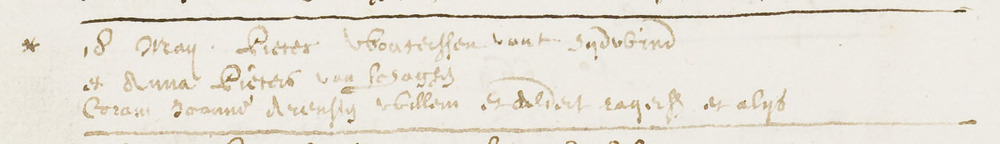 18 May. Pieter Woutersen vant
et Anna Pieters van Schagen
Coram Joanne Arensen Willem et Aldert et alys